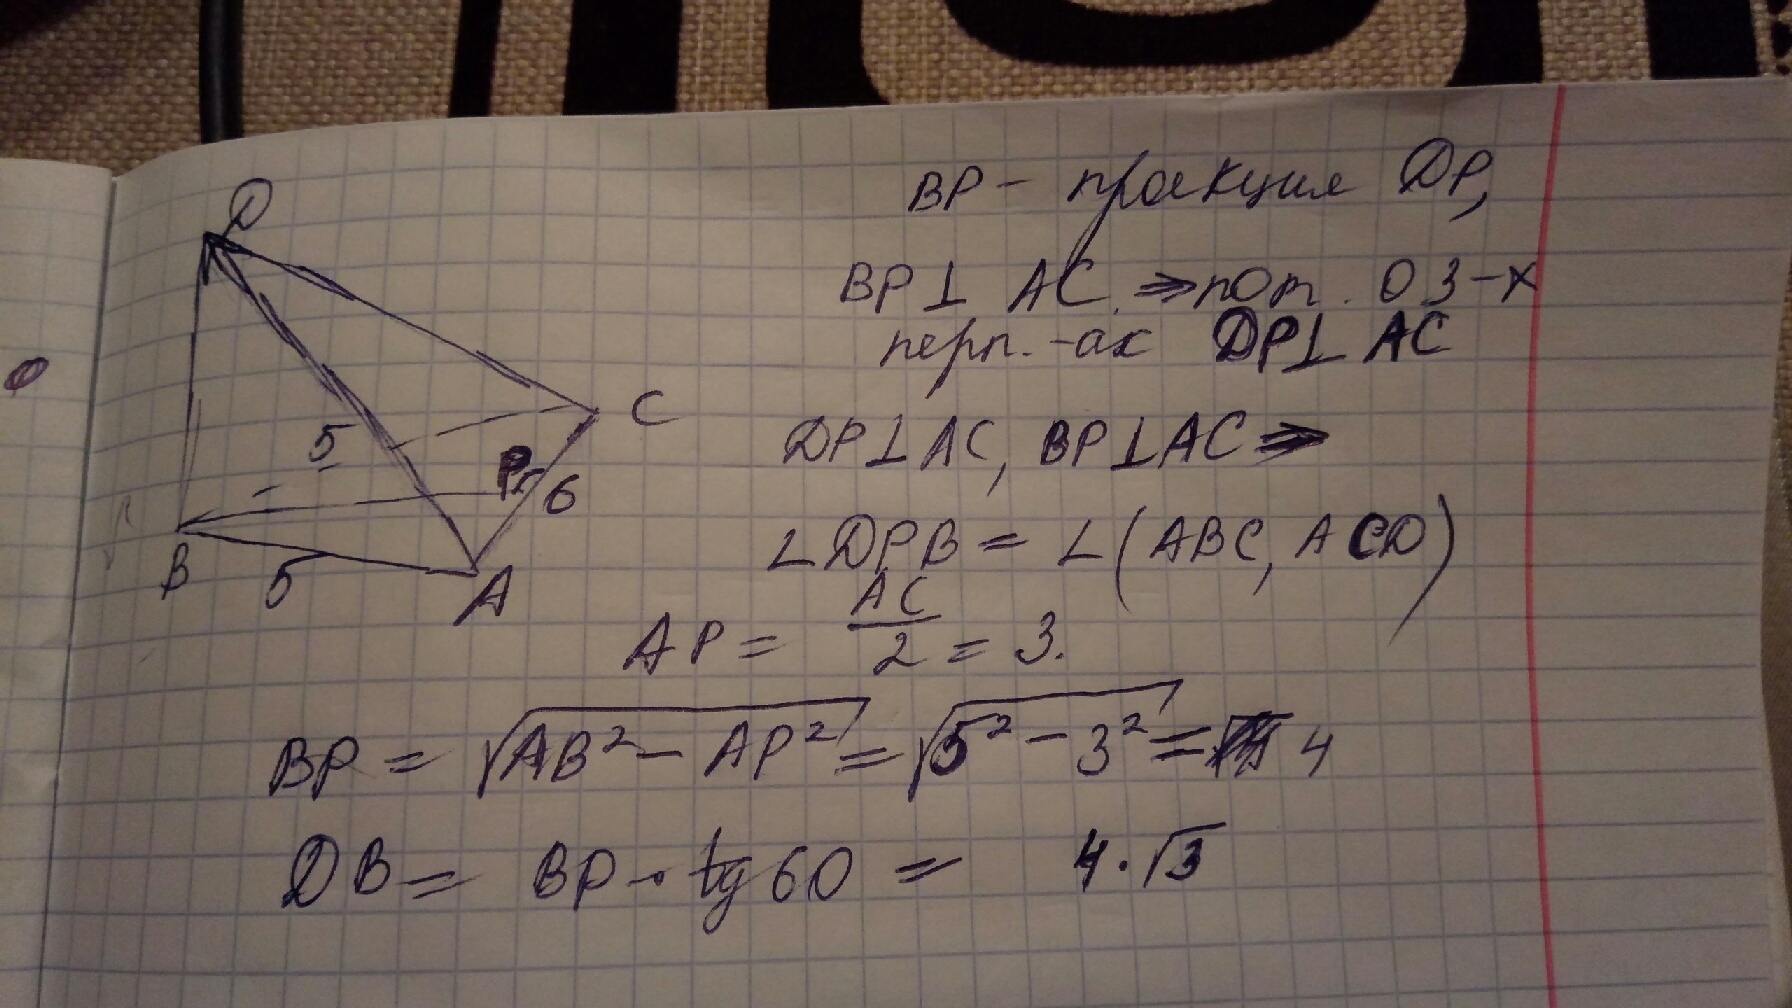 D
5
C
P
6
B
5
A
BP - проекция DP,
BP⊥ AC ⇒ по т. о 3-х
перп.-ах DP⊥ AC
DP⊥AC, BP⊥AC ⇒
∠DPB = ∠(ABC, ACD)
AP = AC/2 = 3.
BP = √(AB² - AP²) = √(5² - 3²) = 4
DB = BP · tg 60 = 4·√3